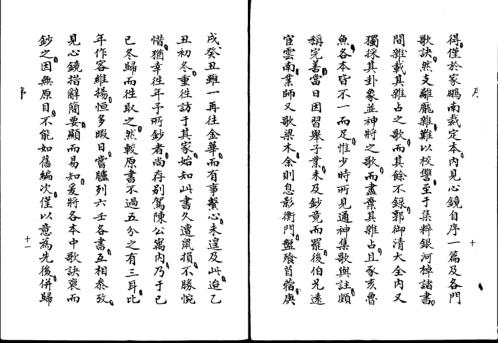 序
十
得僅於家鵬南裁定本內見心鏡自序一篇及各門
歌訣然支離龐雜難以校讐至于集粹銀河棹諸書
間雜載其雜占之歌而其餘不錄郭御清大全內又
獨採其卦象並神將之歌而盡棄其雜占且豕亥魯
魚各本皆不一而足惟少時所見通神集歌與註頗
稱完善當日因習舉子業未及鈔竟而罷後伯兄遠
宦雲南業師又歌梁木余則息影衡門盤飱首蓿庚
戌癸丑雖一再往金華而有事繫心未遑及此迨乙
丑初冬重往訪于其家始知此書久遭風損不勝惋
惜猶幸往年子所鈔者尚存別駕陳公寓內乃于己
巳冬歸而往取之然較原書不過五分之有三耳比
年作客維揚恒多暇日嘗臚列六壬各書互相叅攷
見心鏡措辭簡要顯而易知爰將各本中歌訣裒而
鈔之因無原目不能如舊編次僅以意為先後併歸
序
十一